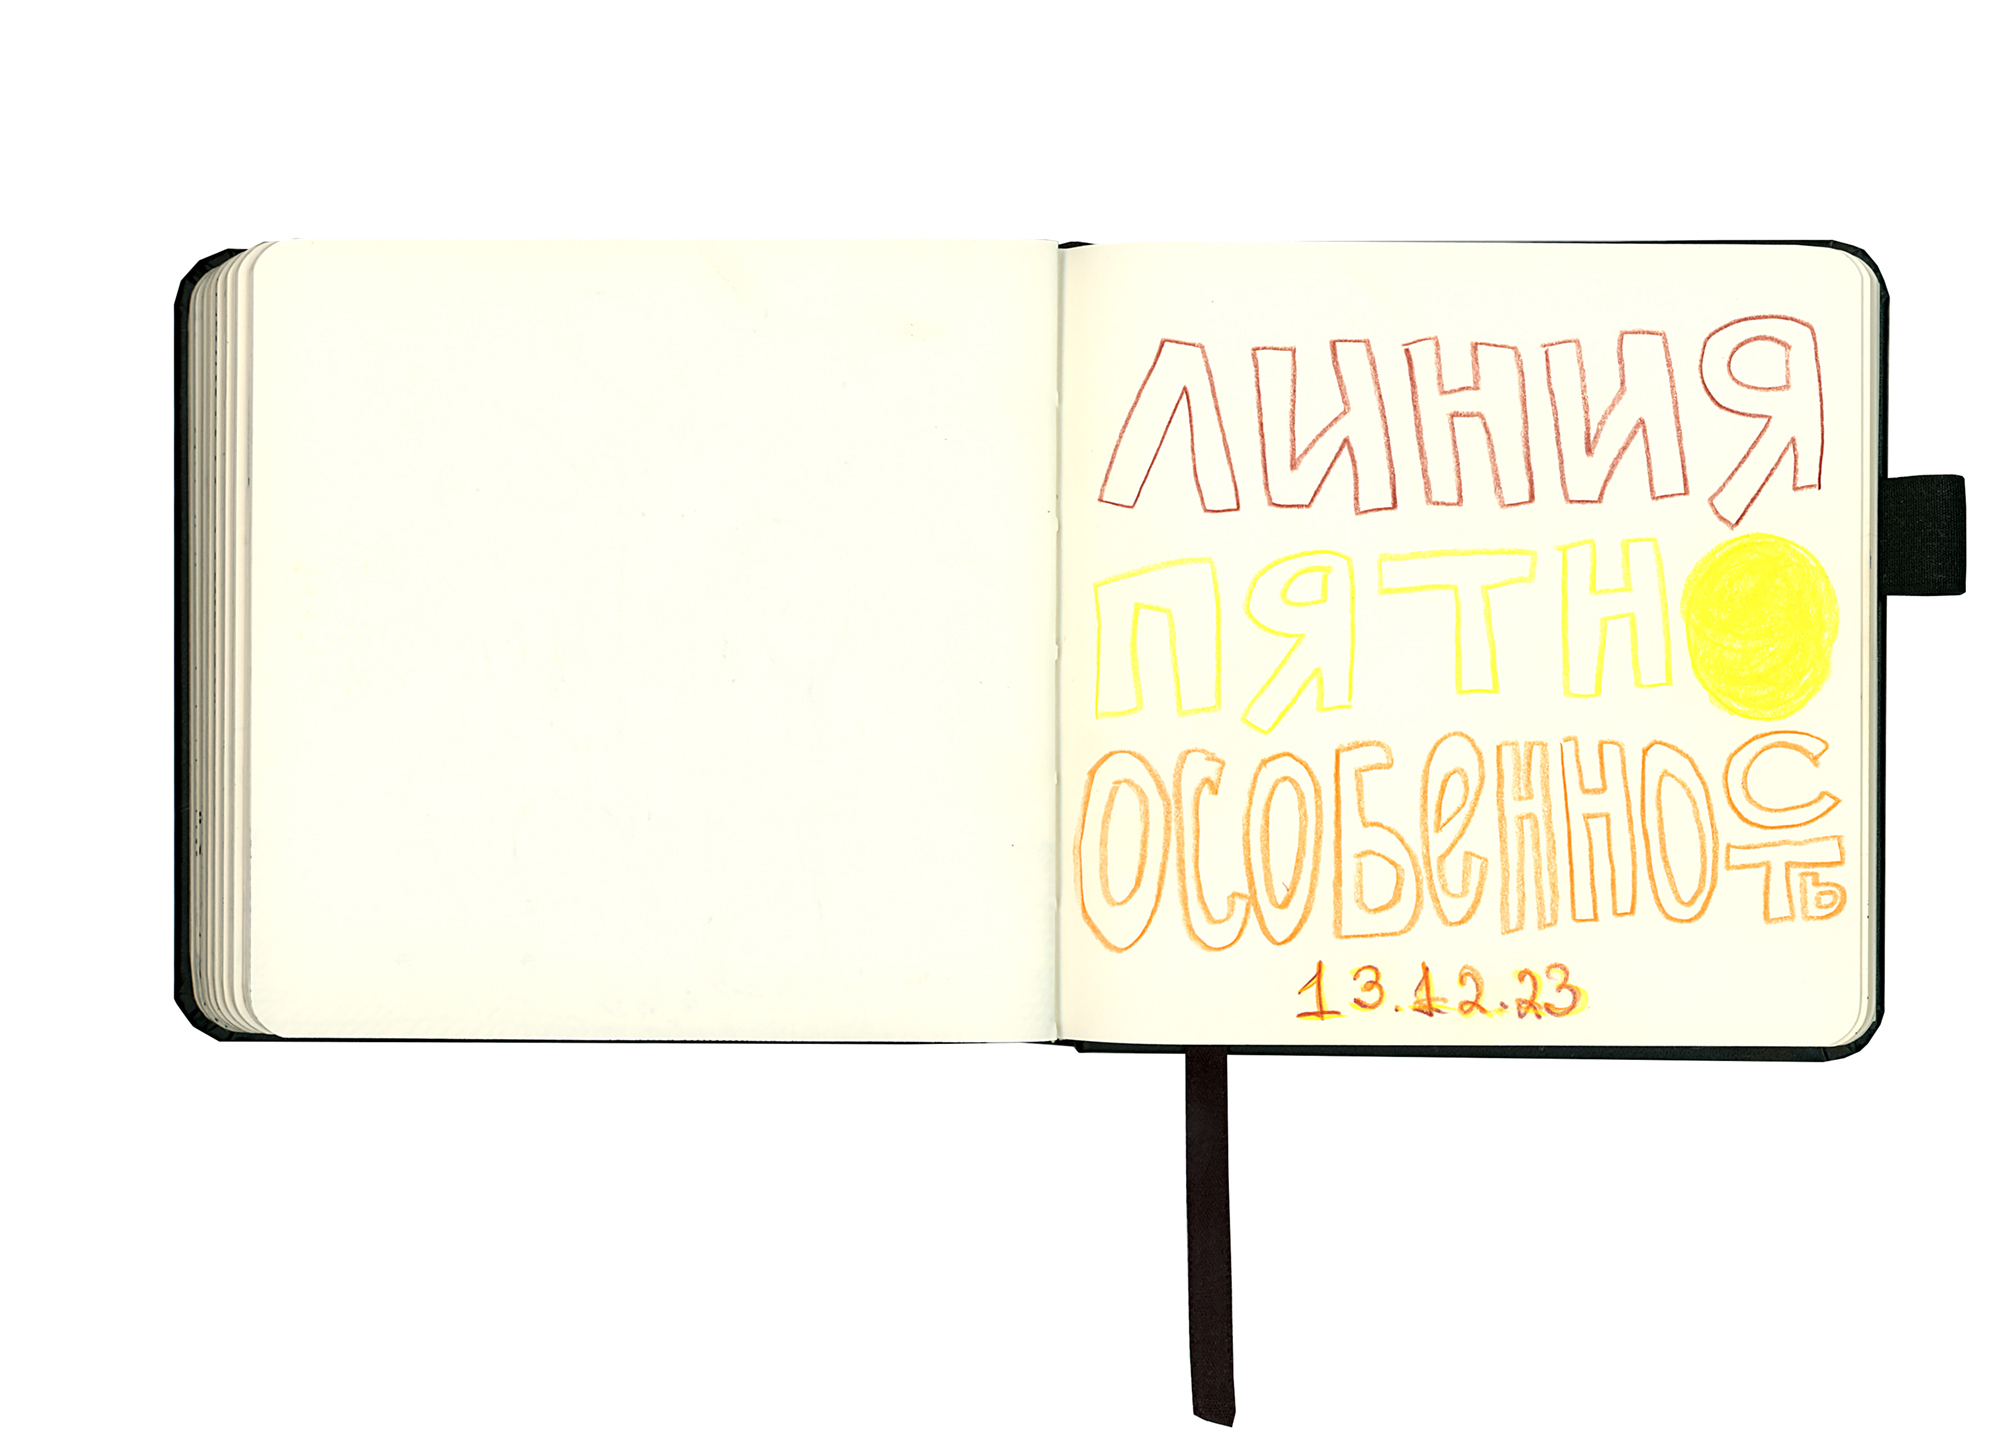 ЛИНИЯ
ПЯТНО
ОСОБЕННОСТЬ
13.12.23